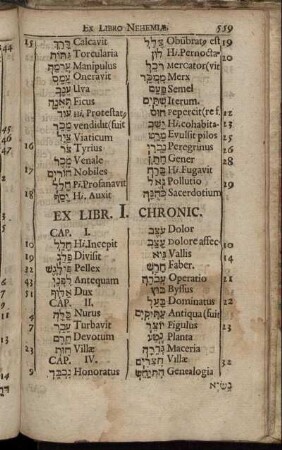 Ex Libro Nehemiæ. 559
15 דָּרַךְ Calcavit
גִּתּוֹת Torcularia
עֲרֵמָה Manipulus
עָמַס Oneravit
עֵנָב Uva
תְּאֵנָה Ficus
עוּד Hi. Protestat⁹
מָכַר vendidit (fuit
צַיִד Viaticum
16 צֹר Tyrius
מֶכֶר Venale
17 חֹרִים Nobiles
חִלֵּל Pi. Profanavit
18 יָסַף Hi. Auxit
צָלַל Obũbratꝰ est 19
לוּן Hi. Pernocta- 20
רֹכֵל Mercator (vit
מִמְכָּר Merx
פַּעַם Semel
שְׁתַּיִם Iterum. 21
חוּס Pepercit (re f. 22
יָשַׁב Hi. cohabita-
מָרַט Evulsit pilos 25
נָכְרִי Peregrinus
חָתָן Gener 28
בָּרַח Hi. Fugavit
גֹּאַל Pollutio 29
כְּהֻנָּה Sacerdotium
EX LIBR. I. CHRONIC.
CAP. I.
חָלַל Hi. Incepit
19 Divisit
פִּילֶגֶשׁ Pellex
Antequam
51 אַלּוּף Dux
CAP. II.
4 כַּלָּה Nurus
7 עָכַר Turbavit
חֵרֶם Devotum
23 חַוֹּת Villæ
CAP. IV.
9 נִכְבָּד Honoratus
עֹצֶב Dolor
עָצַב Dolore affec-
גַּיְא Vallis
חָרָשׁ Faber.
עֲבֹדָה Operatio 21
בּוּץ Byssus
בָּעַל Dominatus 22
עַתִּיקִים Antiqua (fuit
יוֹצֵר Figulus 23
נֶטַע Planta
גְּדֵרָה Maceria
חֲצֵרִים Villæ 32
הִתְיַחֵשׂ Genealogia
נָשִׂיא